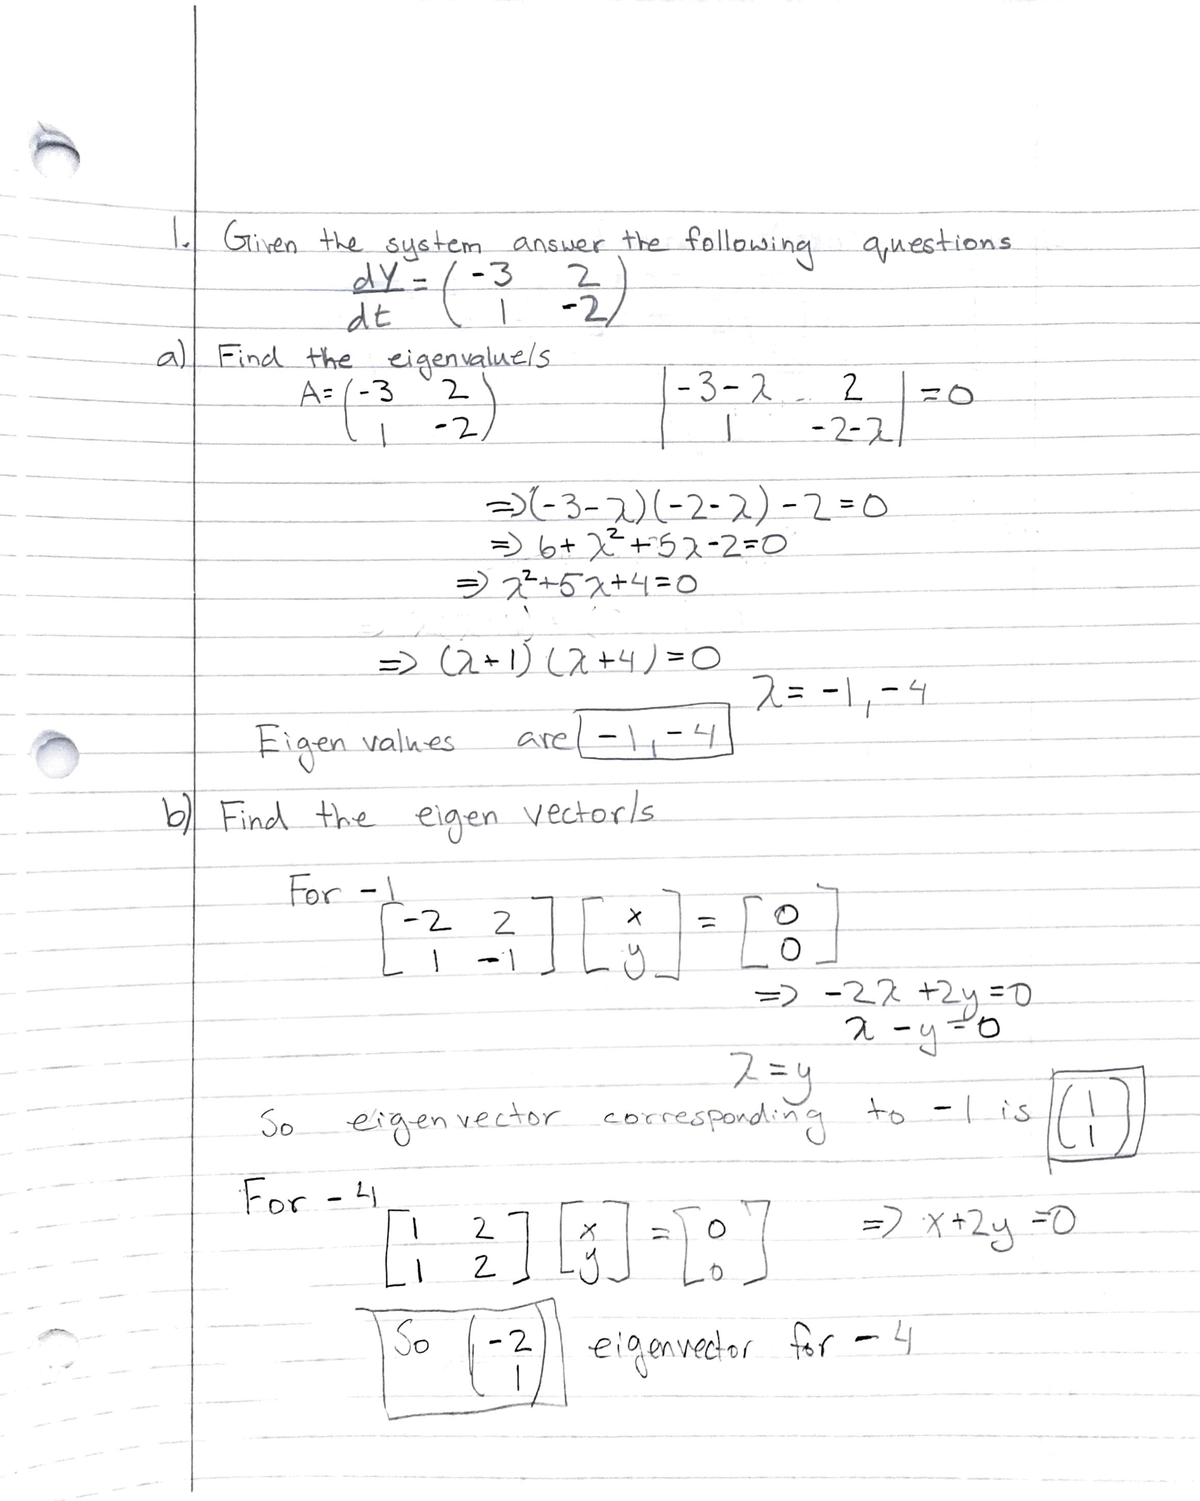 1. Given the system answer the following questions
dY/dt = (-3 2
1 -2)
a) Find the eigenvalue/s
A = (-3 2
1 -2) |-3-λ 2
1 -2-λ| = 0
=> (-3-λ)(-2-λ) - 2 = 0
=> 6+λ²+5λ-2=0
=> λ²+5λ+4=0
=> (λ+1)(λ+4)=0
λ = -1, -4
Eigen values are -1, -4
b) Find the eigen vector/s
For -1
[-2 2
1 -1] [x
y] = [0
0]
=> -2x+2y=0
x-y=0
x=y
So eigenvector corresponding to -1 is (1
1)
For -4
[1 2
1 2] [x
y] = [0
0] => x+2y=0
So (-2
1) eigenvector for -4